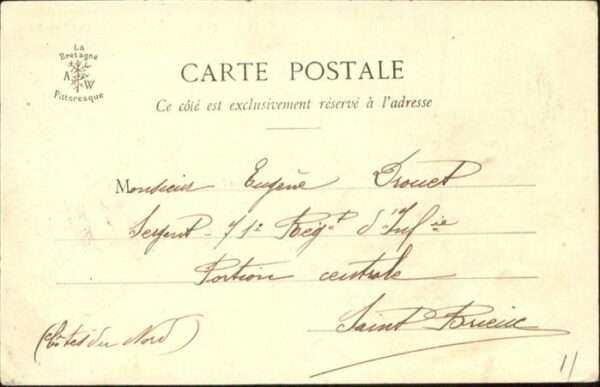 La
Bretagne
A W
Pittoresque
CARTE POSTALE
Ce côté est exclusivement réservé à l'adresse
Monsieur Eugène Drouet
Sergent - 71e Régt d'Infie
Portion centrale
Saint Brieuc
(Côtes du Nord)
1/